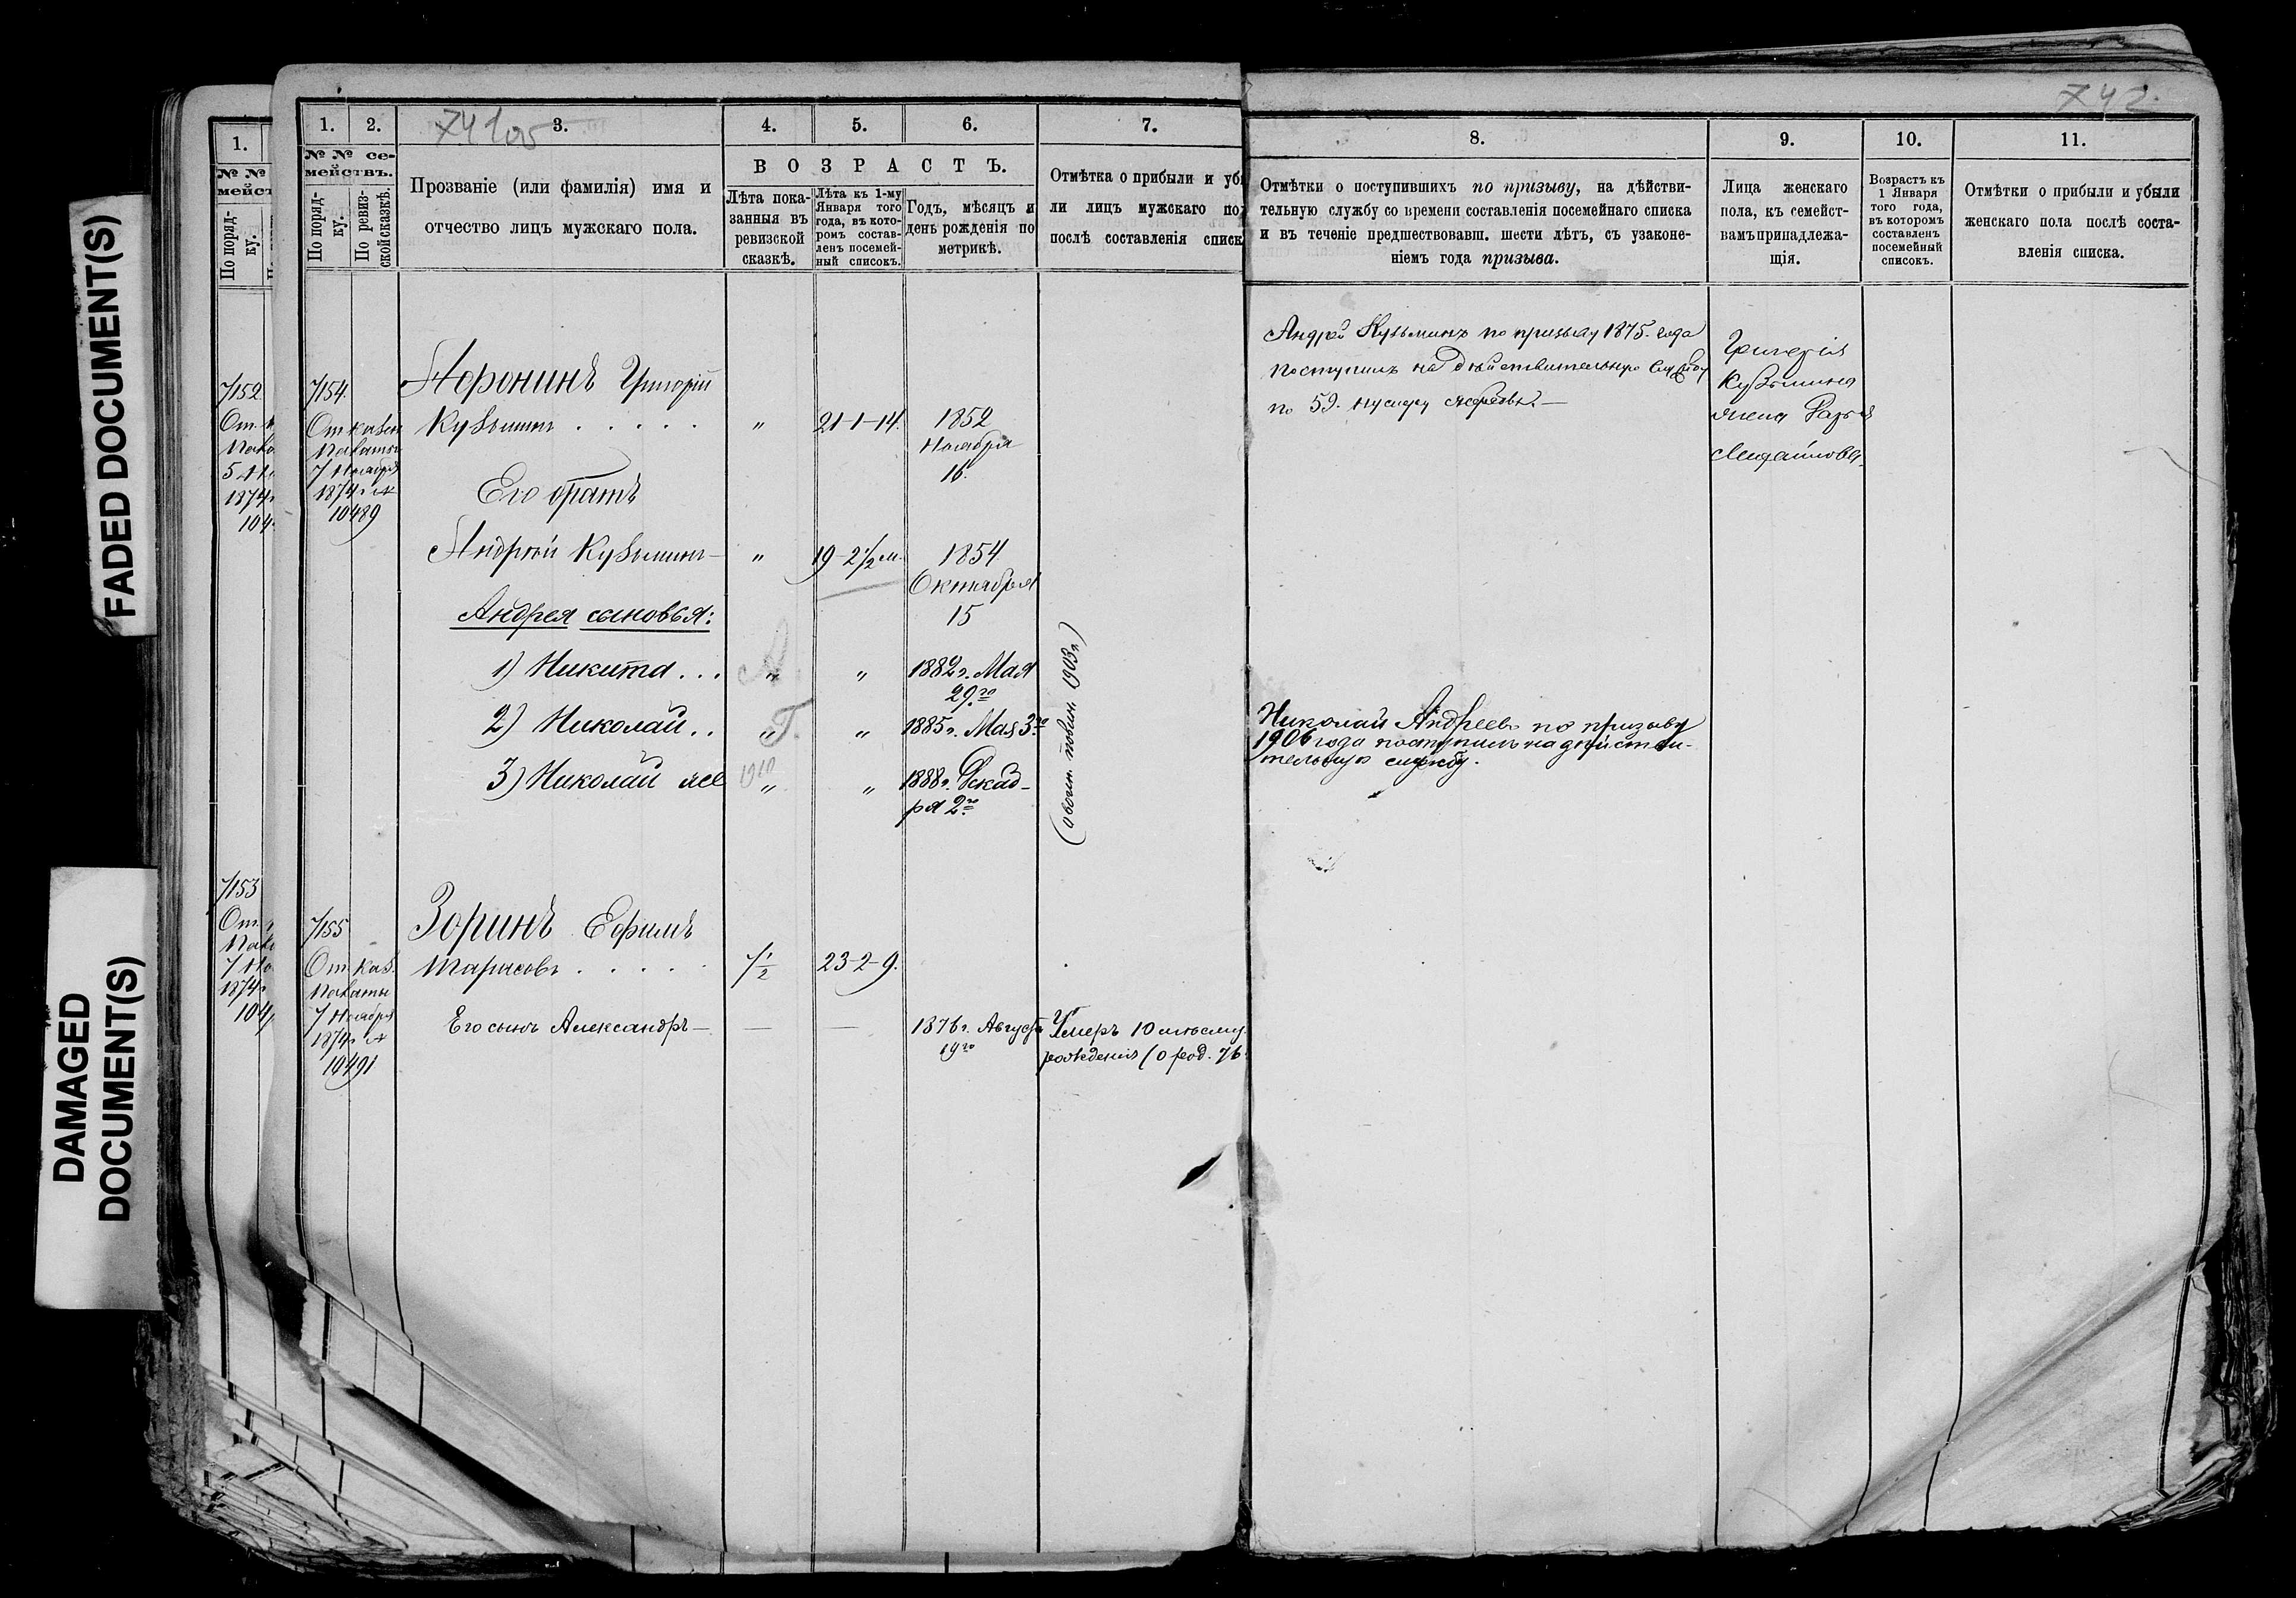 FADED DOCUMENT(S)
DAMAGED
DOCUMENT(S)
1.
№ №
мейст
По поряд-
ку.
7152
От.
Пала
5
1874
104
7153
От.
Пала
7 Но
1874
104
1.
2.
3.
4.
5.
6.
7.
№ № се-
мействъ.
По поряд-
ку.
По ревиз-
ской сказкѣ.
Прозваніе (или фамилія) имя и
отчество лицъ мужскаго пола.
ВОЗРАСТЪ.
Лѣта пока-
занныя въ
ревизской
сказкѣ.
Лѣта къ 1-му
Января того
года, въ кото-
ромъ состав-
ленъ посемей-
ный списокъ.
Годъ, мѣсяцъ и
день рожденія по
метрикѣ.
Отмѣтка о прибыли и убы
ли лицъ мужскаго по
послѣ составленія списк
7154.
От. казен
Палаты
7 Ноября
1874 г. №
10489
Григорій
Кузьминъ . . . . .
"
21-1-14.
1852
Ноября
16.
Его братъ
Андрей Кузьминъ—
"
19-2½ м.
1854
Октября
15
Андрея сыновья:
1) Никита ...
"
"
1882 г. Мая
29го
2) Николай ..
"
"
1885 г. Мая 3го
3) Николай же
1910
"
"
1888 г. Декаб-
ря 2го
7155
От. каз.
Палаты
7 Ноября
1874 г. №
10491
Зоринъ Ефимъ
Тарасовъ . . . . .
7½
23-2-9.
Его сынъ Александръ—
—
—
1876 г. Августа
19го
Умеръ
рожденія
742
8.
9.
10.
11.
Отмѣтки о поступившихъ по призыву, на дѣйстви-
тельную службу со времени составленія посемейнаго списка
и въ теченіе предшествовавш. шести лѣтъ, съ узаконе-
ніемъ года призыва.
Лица женскаго
пола, къ семейст-
вамъ принадлежа-
щія.
Возрастъ къ
1 Января
того года,
въ которомъ
составленъ
посемейный
списокъ.
Отмѣтки о прибыли и убыли
женскаго пола послѣ соста-
вленія списка.
Андрей Кузьминъ по призыву 1875 года
поступилъ на дѣйствительную службу
по 59. нумеру жеребья.—
Григорія
Кузьмина
жена Дарья
Николай Андреевъ по призыву
1906 года поступилъ на дѣйстви-
тельную службу.